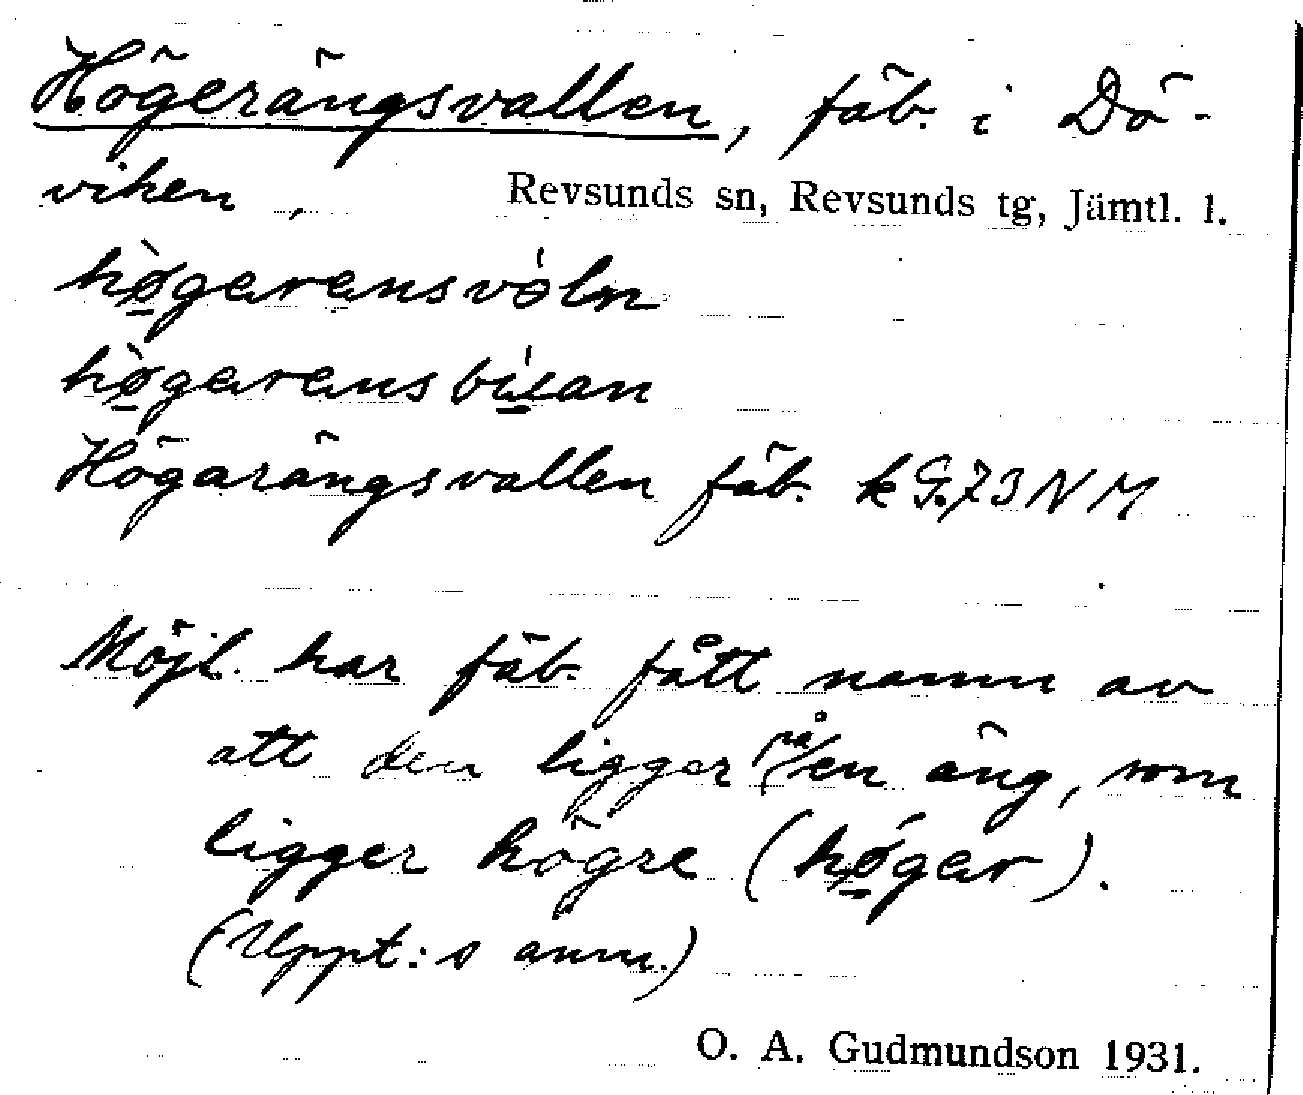 Högerängsvallen, fäb. i Dö-
viken, Revsunds sn, Revsunds tg, Jämtl. l.
hø̀garansvóln
hø̀garans
Högarängsvallen fäb. k G.73 N M
Möjl. har fäb. fått namn av
att den ligger på en äng, som
ligger högre (hø̀gar).
(Uppt:s anm.)
O. A. Gudmundson 1931.